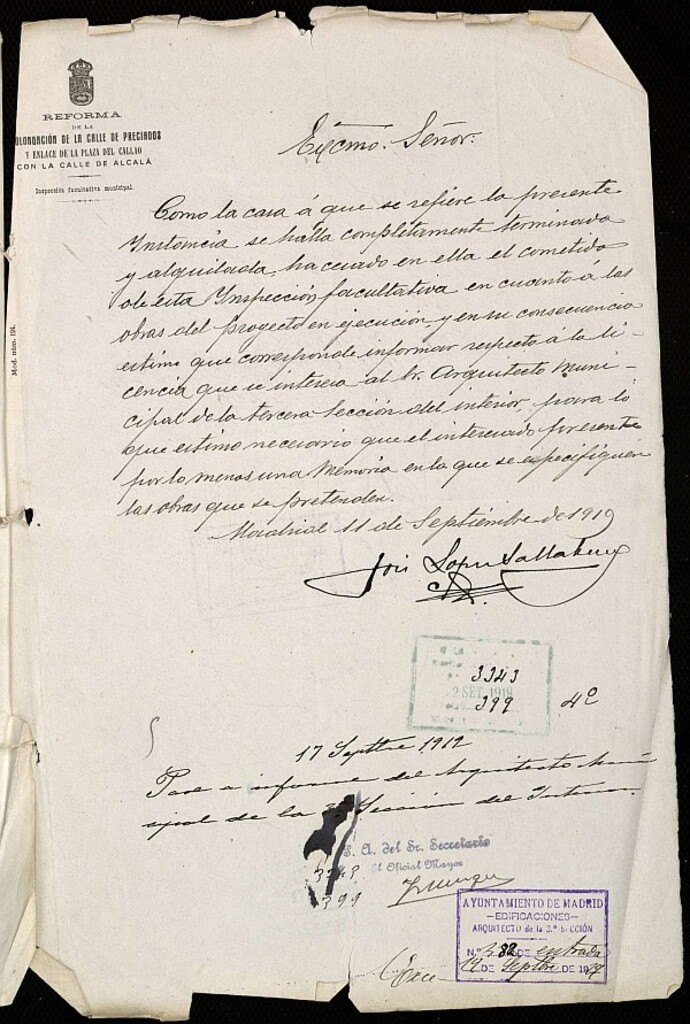 REFORMA
DE LA
OLONGACIÓN DE LA CALLE DE PRECIADOS
Y ENLACE DE LA PLAZA DEL CALLAO
CON LA CALLE DE ALCALÁ
Inspección facultativa municipal.
Mod. núm. 191.
Excmo. Señor.
Como la casa á que se refiere la presente
Instancia se halla completamente terminada
y alquilada, ha cesado en ella el cometido
de esta Inspección facultativa en cuanto á las
obras del proyecto en ejecución, y en su consecuencia
estimo que corresponde informar respecto á la li-
cencia que se interesa al Sr. Arquitecto Muni-
cipal de la tercera Sección del interior, para lo
que estimo necesario que el interesado presente
por lo menos una Memoria en la que se especifiquen
las obras que se pretenden.
Madrid 11 de Septiembre de 1919
José López Sallaberry
3343
2 SET. 1919
399 4º
17 Septbre 1919
Pase a informe del Arquitecto Muni
cipal de la 3ª Sección del Interior.
S. A. del Sr. Secretario
El Oficial Mayor
3343
399
AYUNTAMIENTO DE MADRID
EDIFICACIONES
ARQUITECTO de la 3.ª SECCIÓN
N.º 382 DE entrada
19 DE Septbre DE 1919
Exce